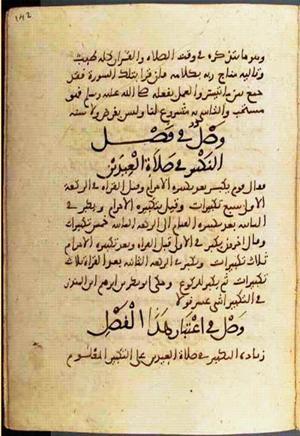 ١٤٢
وهو ما يتذكره في وقت الصلاة والقرآن كله طيب
وتاليه مناج ربه بكلامه فإن قرأ بتلك السورة فقد
جمع بين ما تيسر والعمل بفعله صلى الله عليه وسلم فهو
مستحب والتأسي به مشروع لنا وليس بفرض ولا سنة
وصل في فصل
التكبير في صلاة العيدين
فقال قوم يكبر بعد تكبيرة الإحرام وقبل القراءة في الركعة
الأولى سبع تكبيرات وقيل بتكبيرة الإحرام ويكبر في
الثانية بعد تكبيرة القيام إلى الركعة الثانية خمس تكبيرات
وقال آخرون يكبر في الأولى قبل القراءة وبعد تكبيرة الإحرام
ثلاث تكبيرات ويكبر في الركعة الثانية بعد القراءة ثلاث
تكبيرات ثم يكبر للركوع وحكى أبو بكر بن إبراهيم ابن المنذر
في التكبير اثني عشر قولا
وصل في اعتبار هذا الفصل
زيادة التكبير في صلاة العيدين على التكبير المعلوم